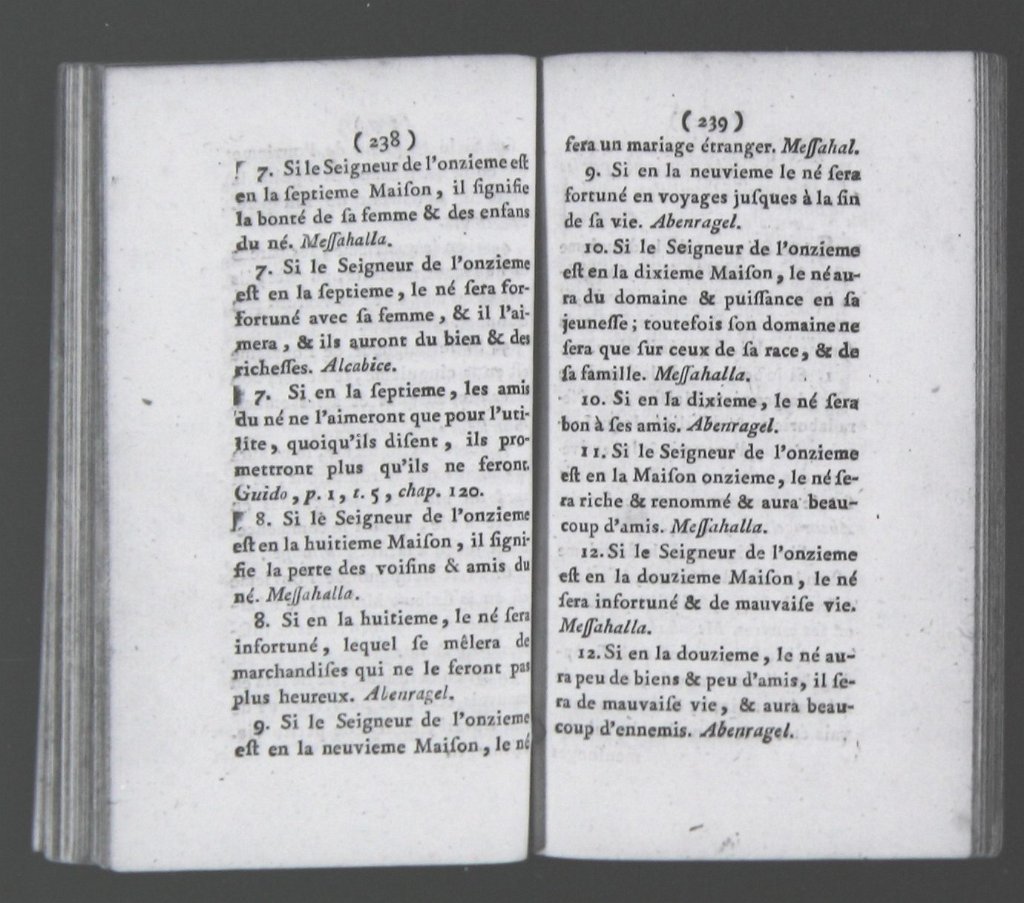 ( 238 )
7. Si le Seigneur de l'onzieme eſt
en la ſeptieme Maiſon, il ſignifie
la bonté de ſa femme & des enfans
du né. Meſſahalla.
7. Si le Seigneur de l'onzieme
eſt en la ſeptieme, le né ſera for-
fortuné avec ſa femme, & il l'ai-
mera, & ils auront du bien & des
richeſſes. Alcabice.
7. Si en la ſeptieme, les amis
du né ne l'aimeront que pour l'uti-
lite, quoiqu'ils diſent, ils pro-
mettront plus qu'ils ne feront.
Guido, p. 1, t. 5, chap. 120.
8. Si le Seigneur de l'onzieme
eſt en la huitieme Maiſon, il ſigni-
fie la perte des voiſins & amis du
né. Meſſahalla.
8. Si en la huitieme, le né ſera
infortuné, lequel ſe mêlera de
marchandiſes qui ne le feront pas
plus heureux. Abenragel.
9. Si le Seigneur de l'onzieme
eſt en la neuvieme Maiſon, le né
( 239 )
fera un mariage étranger. Meſſahal.
9. Si en la neuvieme le né ſera
fortuné en voyages juſques à la fin
de ſa vie. Abenragel.
10. Si le Seigneur de l'onzieme
eſt en la dixieme Maiſon, le né au-
ra du domaine & puiſſance en ſa
jeuneſſe; toutefois ſon domaine ne
ſera que ſur ceux de ſa race, & de
ſa famille. Meſſahalla.
10. Si en la dixieme, le né ſera
bon à ſes amis. Abenragel.
11. Si le Seigneur de l'onzieme
eſt en la Maiſon onzieme, le né ſe-
ra riche & renommé & aura beau-
coup d'amis. Meſſahalla.
12. Si le Seigneur de l'onzieme
eſt en la douzieme Maiſon, le né
ſera infortuné & de mauvaiſe vie.
Meſſahalla.
12. Si en la douzieme, le né au-
ra peu de biens & peu d'amis, il ſe-
ra de mauvaiſe vie, & aura beau-
coup d'ennemis. Abenragel.